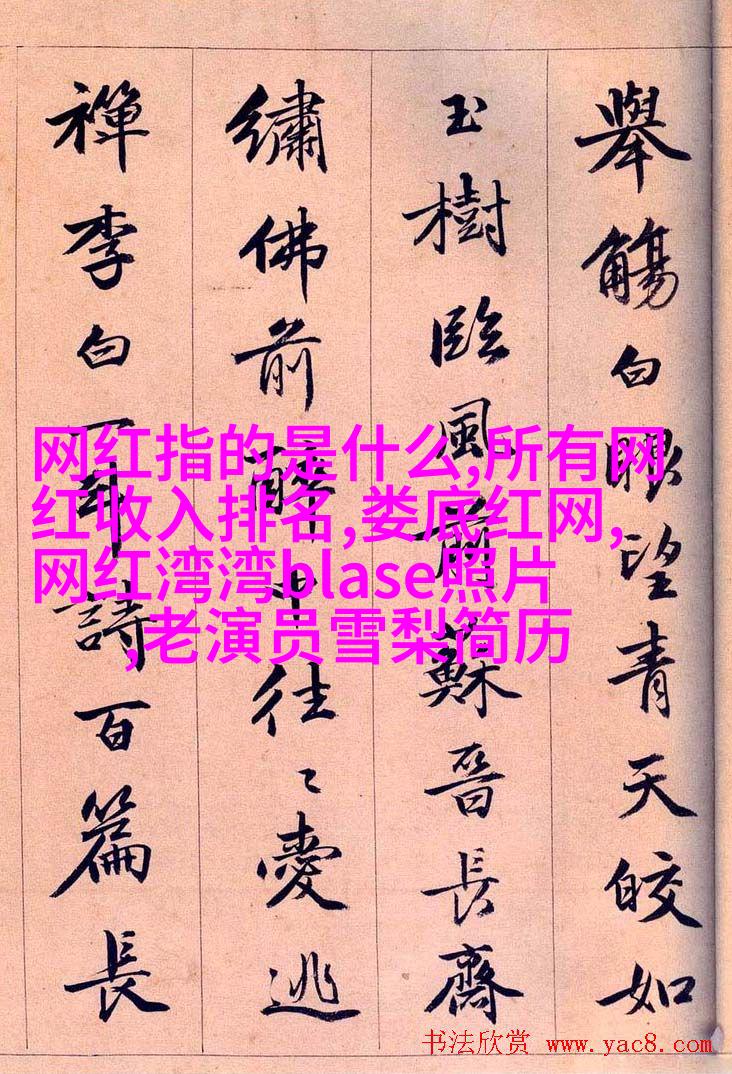 舉觴白眼望青天皎如
玉樹臨風前蘇晉長齋
繡佛前醉中往々愛逃
禪李白一斗詩百篇長
网红指的是什么,所有网
红收入排名,娄底红网,
网红湾湾blase照片
,老演员雪梨简历
书法欣赏 www.yac8.com